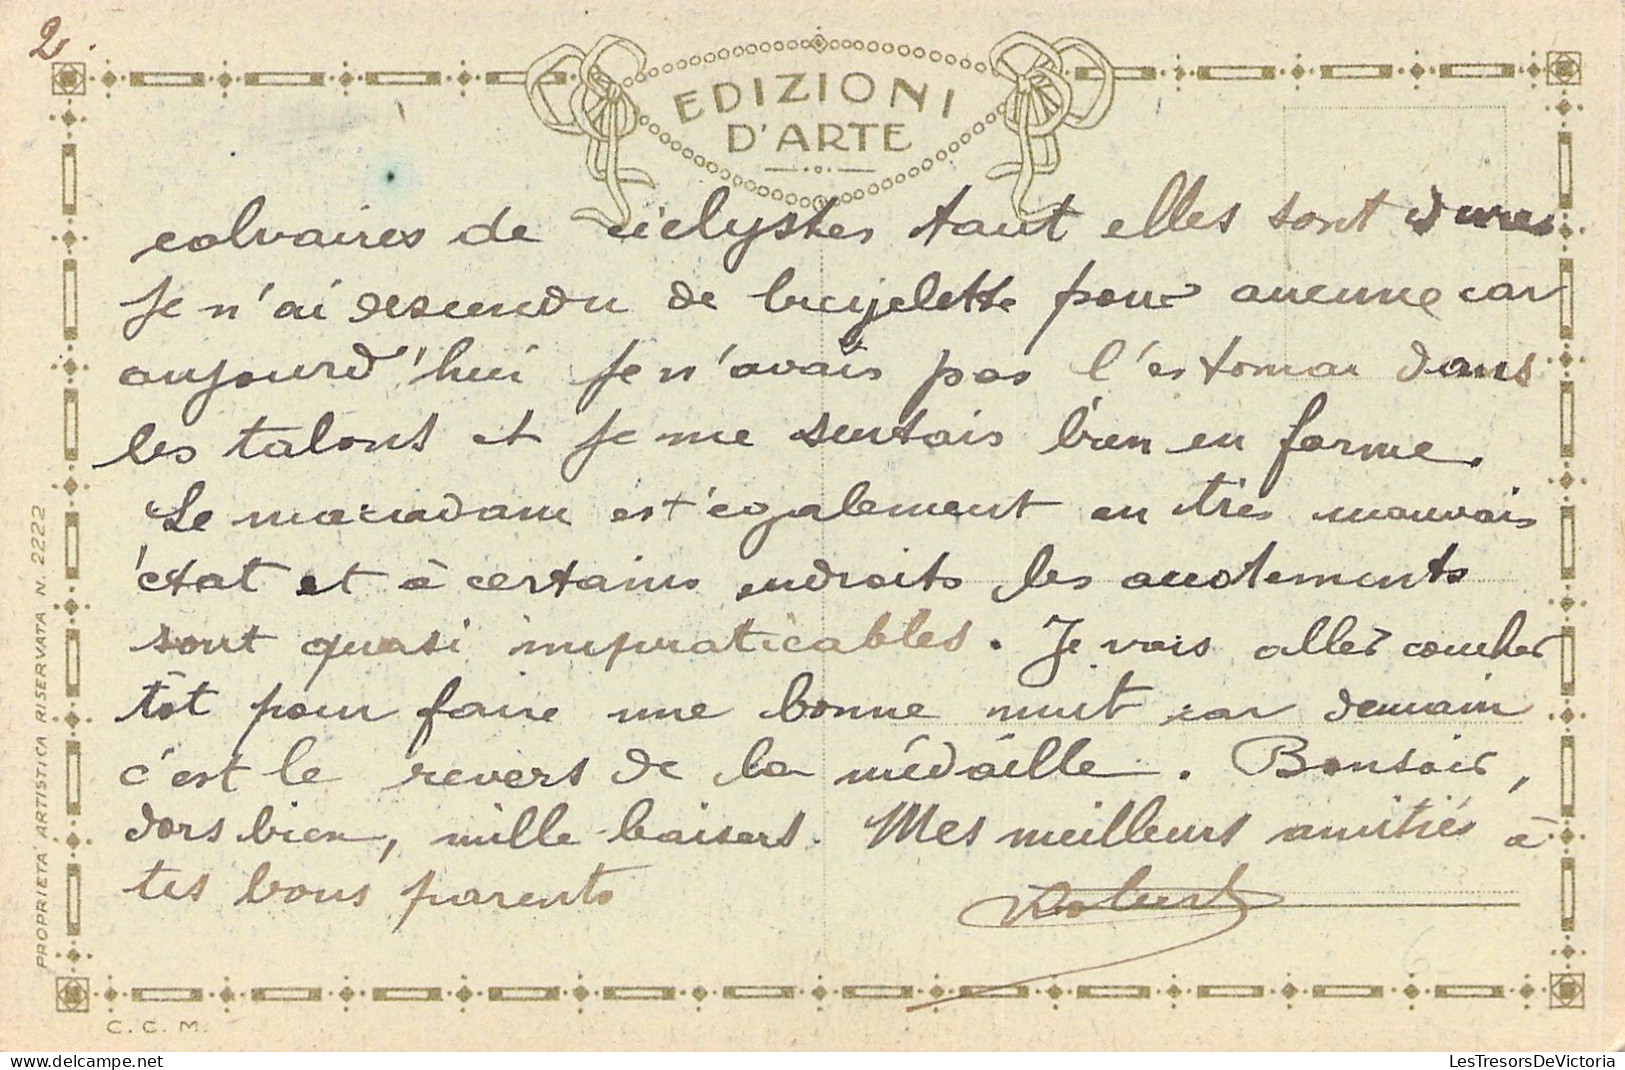 2.
EDIZIONI
D'ARTE
calvaires de ciclystes tant elles sont dures
Je n'ai descendu de bicyclette pour aucune car
aujourd'hui je n'avais pas l'estomac dans
les talons et je me sentais bien en forme.
Le macadam est également en très mauvais
état et à certains endroits les accotements
sont quasi impraticables. Je vais aller coucher
tôt pour faire une bonne nuit car demain
c'est le revers de la médaille. Bonsoir,
dors bien, mille baisers. Mes meilleurs amitiés à
tes bons parents
Robert
PROPRIETA' ARTISTICA RISERVATA N. 2222
C. C. M.
LesTresorsDeVictoria